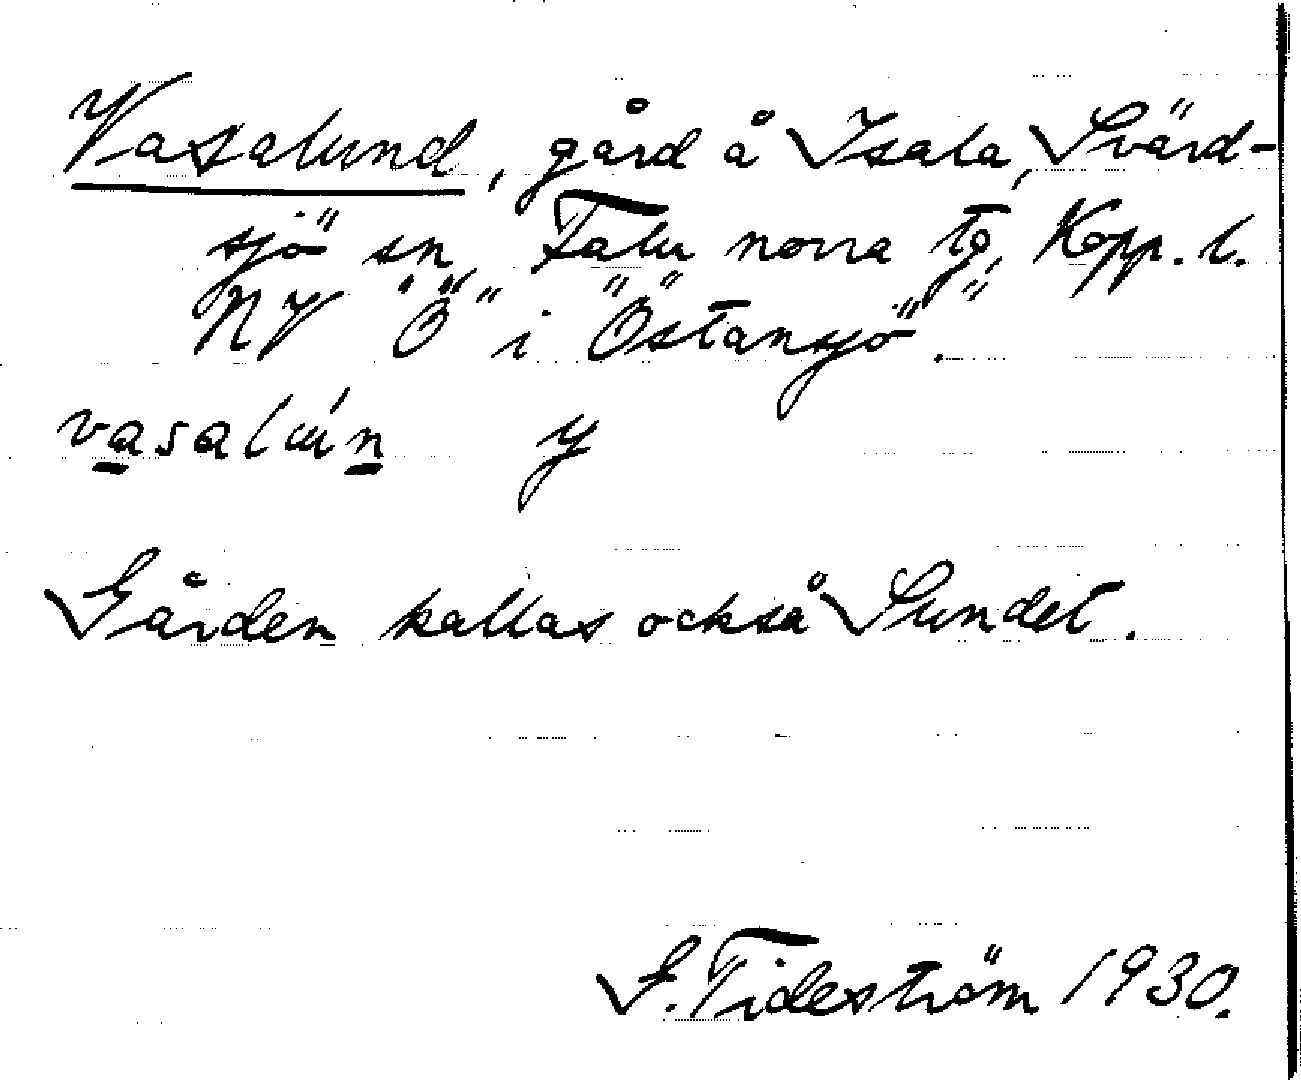 Vasalund, gård å Isala, Svärd-
sjö sn, Falu norra tg, Kopp. l.
NV "Ö" i "Östansjö".
vasalún y
Gården kallas också Sundet.
G. Tideström 1930.